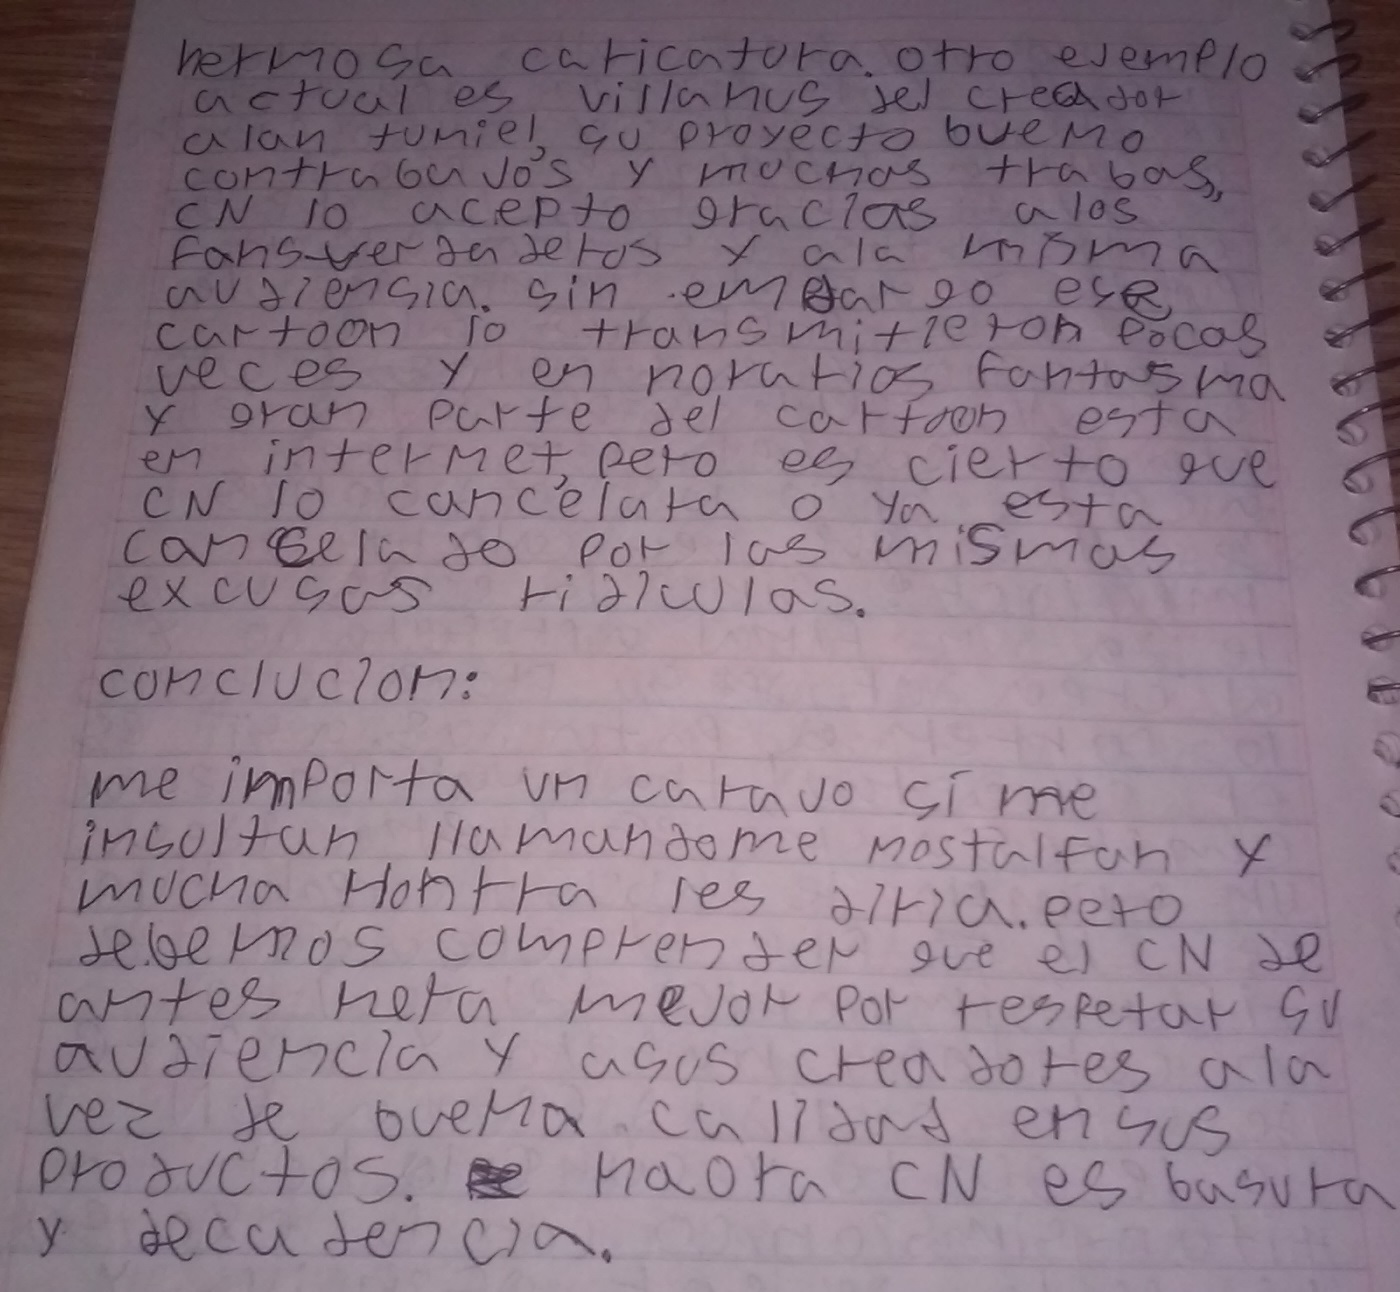 hermosa caricatura. otro ejemplo
actual es villanus del creador
alan tumiel, su proyecto bueno
contrabajos y muchas trabas,
CN lo acepto gracias alos
fans verdaderos y ala misma
audiensia. sin embargo ese
cartoon lo transmitieron pocas
veces y en horarios fantasma
y gran parte del cartoon esta
en internet, pero es cierto que
CN lo cancelara o ya esta
cancelado por las mismas
excusas ridiculas.
conclucion:
me importa un carajo si me
insultan llamandome nostalfan y
mucha Hontra les diria. pero
debemos comprender que el CN de
antes hera mejor por respetar su
audiencia y asus creadores ala
vez de buena calidad ensus
productos. haora CN es basura
y decadencia.